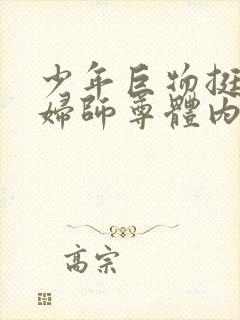 少年巨物挺
婦師尊體内
高宗